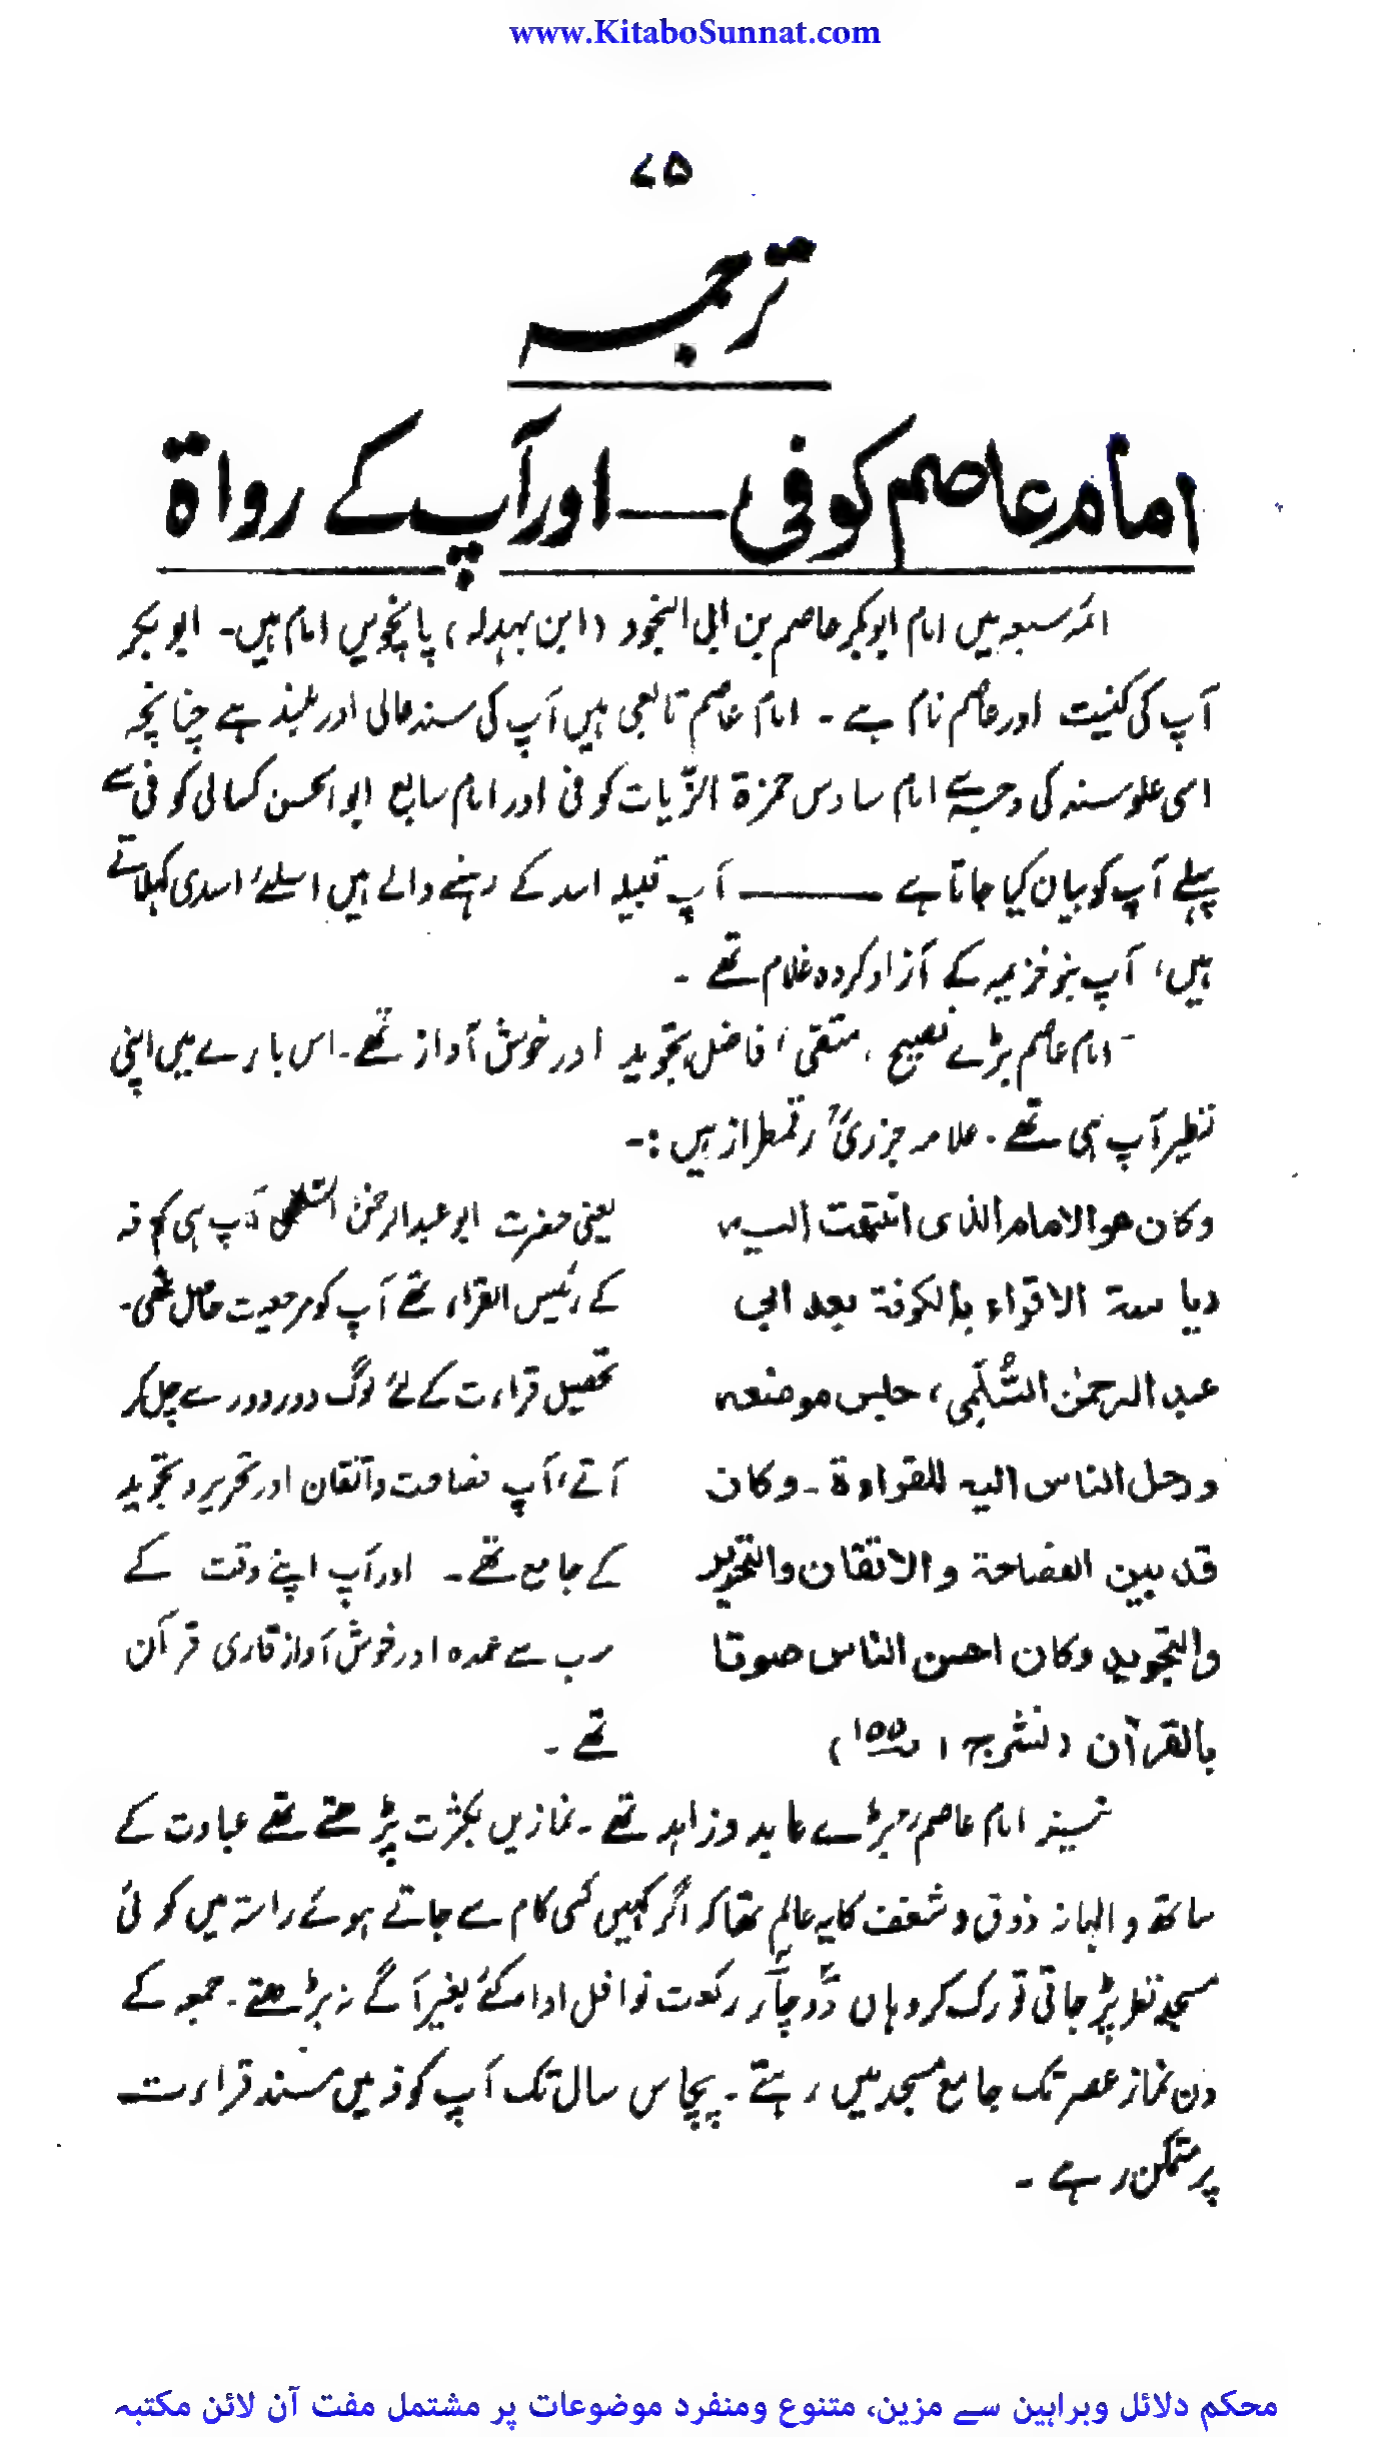 www.KitaboSunnat.com
۷۵
ترجمہ
امام عاصم کوفی — اور آپ کے رواۃ
ائمہ سبعہ میں امام ابو بکر عاصم بن ابی النجود (ابن بہدلہ) پانچویں امام ہیں۔ ابو بکر
آپ کی کنیت اور عاصم نام ہے۔ امام عاصم تابعی ہیں آپ کی سند عالی اور بلند ہے چنانچہ
اسی علو سند کی وجہ سے امام سادس حمزۃ الزّیات کوفی اور امام سابع ابو الحسن کسائی کوفی سے
پہلے آپ کو بیان کیا جاتا ہے —— آپ قبیلہ اسد کے رہنے والے ہیں اسلئے اسدی کہلاتے
ہیں، آپ بنو خزیمہ کے آزاد کردہ غلام تھے۔
امام عاصم بڑے فصیح، متقی، فاضل بتجوید اور خوش آواز تھے۔ اس بارے میں اپنی
نظیر آپ ہی تھے۔ علامہ جزریؒ رقمطراز ہیں :-
وکان ھو الامام الذی انتہت الیہ
ریاسۃ الاقراء بالکوفۃ بعد ابی
عبد الرحمٰن السُّلَمِی، جلس موضعہ
ورحل الناس الیہ للقراءۃ۔ وکان
قد بین الفصاحۃ والاتقان والتحریر
والتجوید وکان احسن الناس صوتا
بالقرآن (نشر ج ۱ ص ۱۵۵)
یعنی حضرت ابو عبد الرحمٰن السُّلمی آپ ہی کوفہ
کے رئیس القراء تھے آپ کو مرجعیت حاصل تھی۔
تحصیل قراءت کے لئے لوگ دور دور سے چل کر
آتے، آپ فصاحت واتقان اور تحریر و تجوید
کے جامع تھے۔ اور آپ اپنے وقت کے
سب سے عمدہ اور خوش آواز قاری قرآن
تھے۔
نیز امام عاصمؒ بڑے عابد و زاہد تھے۔ نمازیں بکثرت پڑھتے تھے عبادت کے
ساتھ والہانہ ذوق و شغف کا یہ عالم تھا کہ اگر کہیں کسی کام سے جاتے ہوئے راستہ میں کوئی
مسجد نظر پڑ جاتی تو رک کر وہاں دو چار رکعت نوافل ادا کئے بغیر آگے نہ بڑھتے۔ جمعہ کے
دن نماز عصر تک جامع مسجد میں رہتے۔ پچاس سال تک آپ کوفہ میں مسند قراءت
پر متمکن رہے۔
محکم دلائل وبراہین سے مزین، متنوع ومنفرد موضوعات پر مشتمل مفت آن لائن مکتبہ